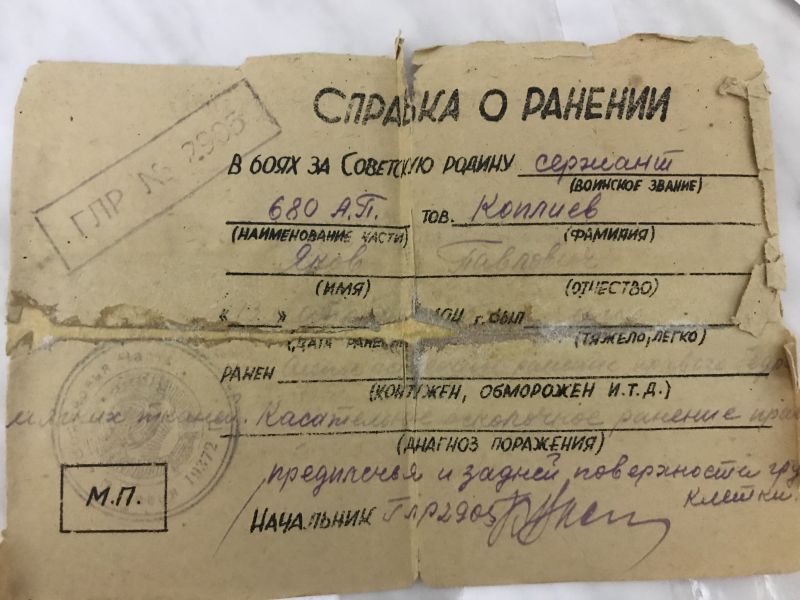 СПРАВКА О РАНЕНИИ
ГЛР № 2903
В БОЯХ ЗА СОВЕТСКУЮ РОДИНУ сержант
(ВОИНСКОЕ ЗВАНИЕ)
680 А.П. ТОВ. Коплиев
(НАИМЕНОВАНИЕ ЧАСТИ) (ФАМИЛИЯ)
Яков Павлович
(ИМЯ) (ОТЧЕСТВО)
" " г. БЫЛ
(ДАТА РАНЕ (ТЯЖЕЛО, ЛЕГКО)
РАНЕН
(КОНТУЖЕН, ОБМОРОЖЕН И.Т.Д.)
мягких тканей. Касательное осколочное ранение
(ДИАГНОЗ ПОРАЖЕНИЯ)
предплечья и задней поверхности гру
клетки
М.П.
19372
НАЧАЛЬНИК ГЛР 2903